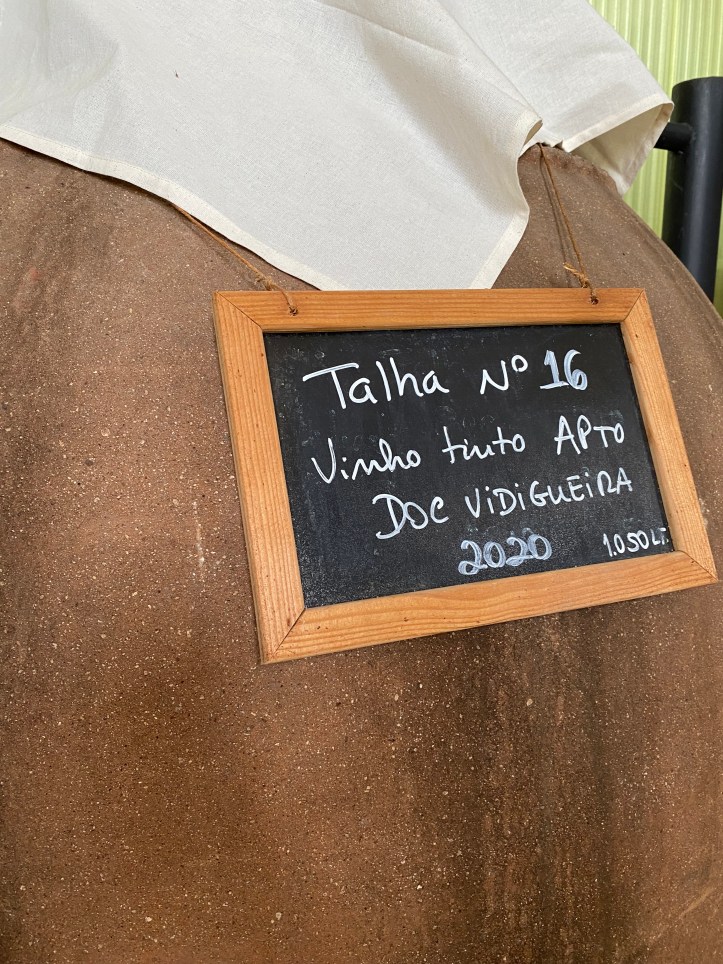 Talha Nº 16
Vinho tinto APTO
DOC ViDiGUEiRA
2020 1.050 LT.